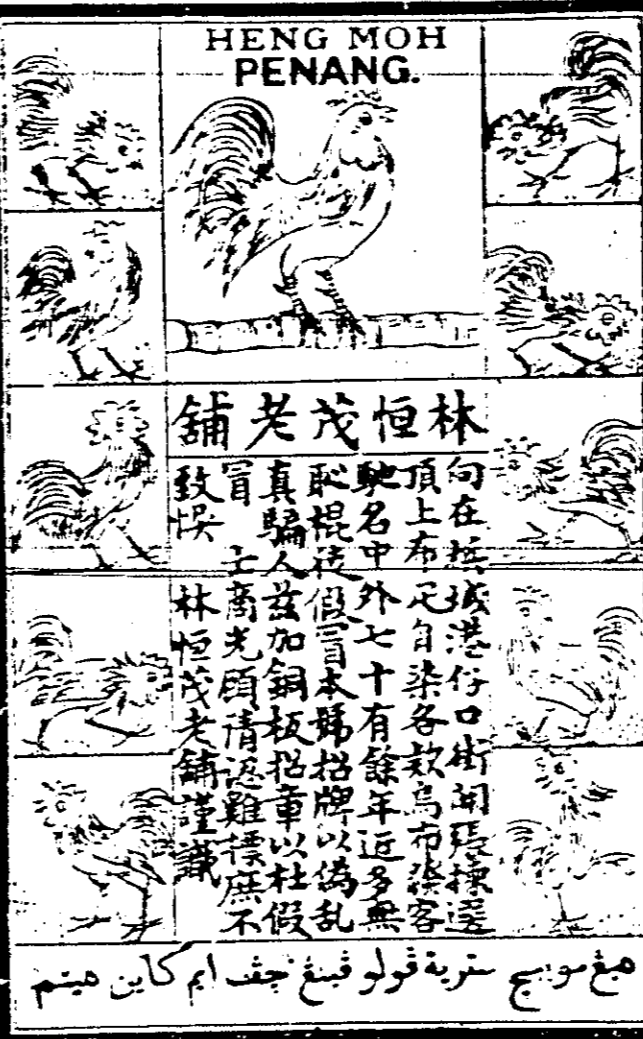 HENG MOH
PENANG.
林恒茂老舖
向在檳城港仔口街開張揀選
頂上布疋自染各款烏布發客
馳名中外七十有餘年近多無
恥棍徒假冒本號招牌以偽乱
真騙人茲加銅板招章以杜假
冒 士商光顧請認雞標庶不
致悞 林恒茂老舖謹識
هيڠ مو بيچ سترية ڤولو ڤينڠ چڤ ايم کاين هيتم